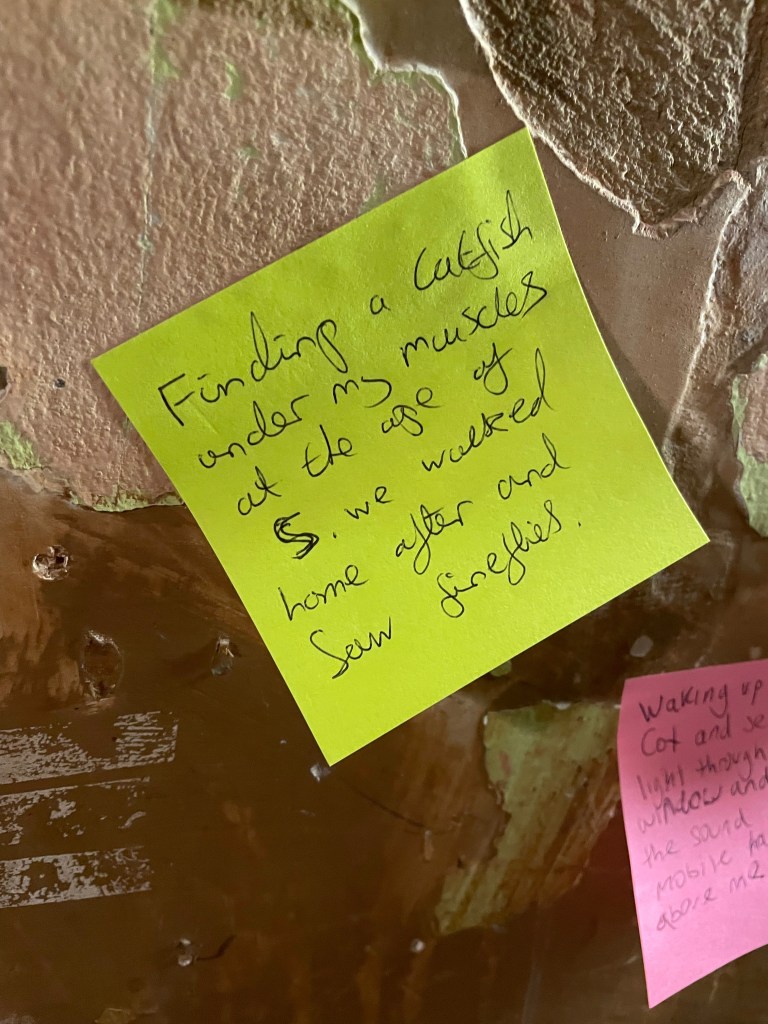 Finding a Catfish
under my muscles
at the age of
5. we walked
home after and
Saw fireflies.
Waking up
Cot and se
light through
window and
the sound
mobile ha
above me